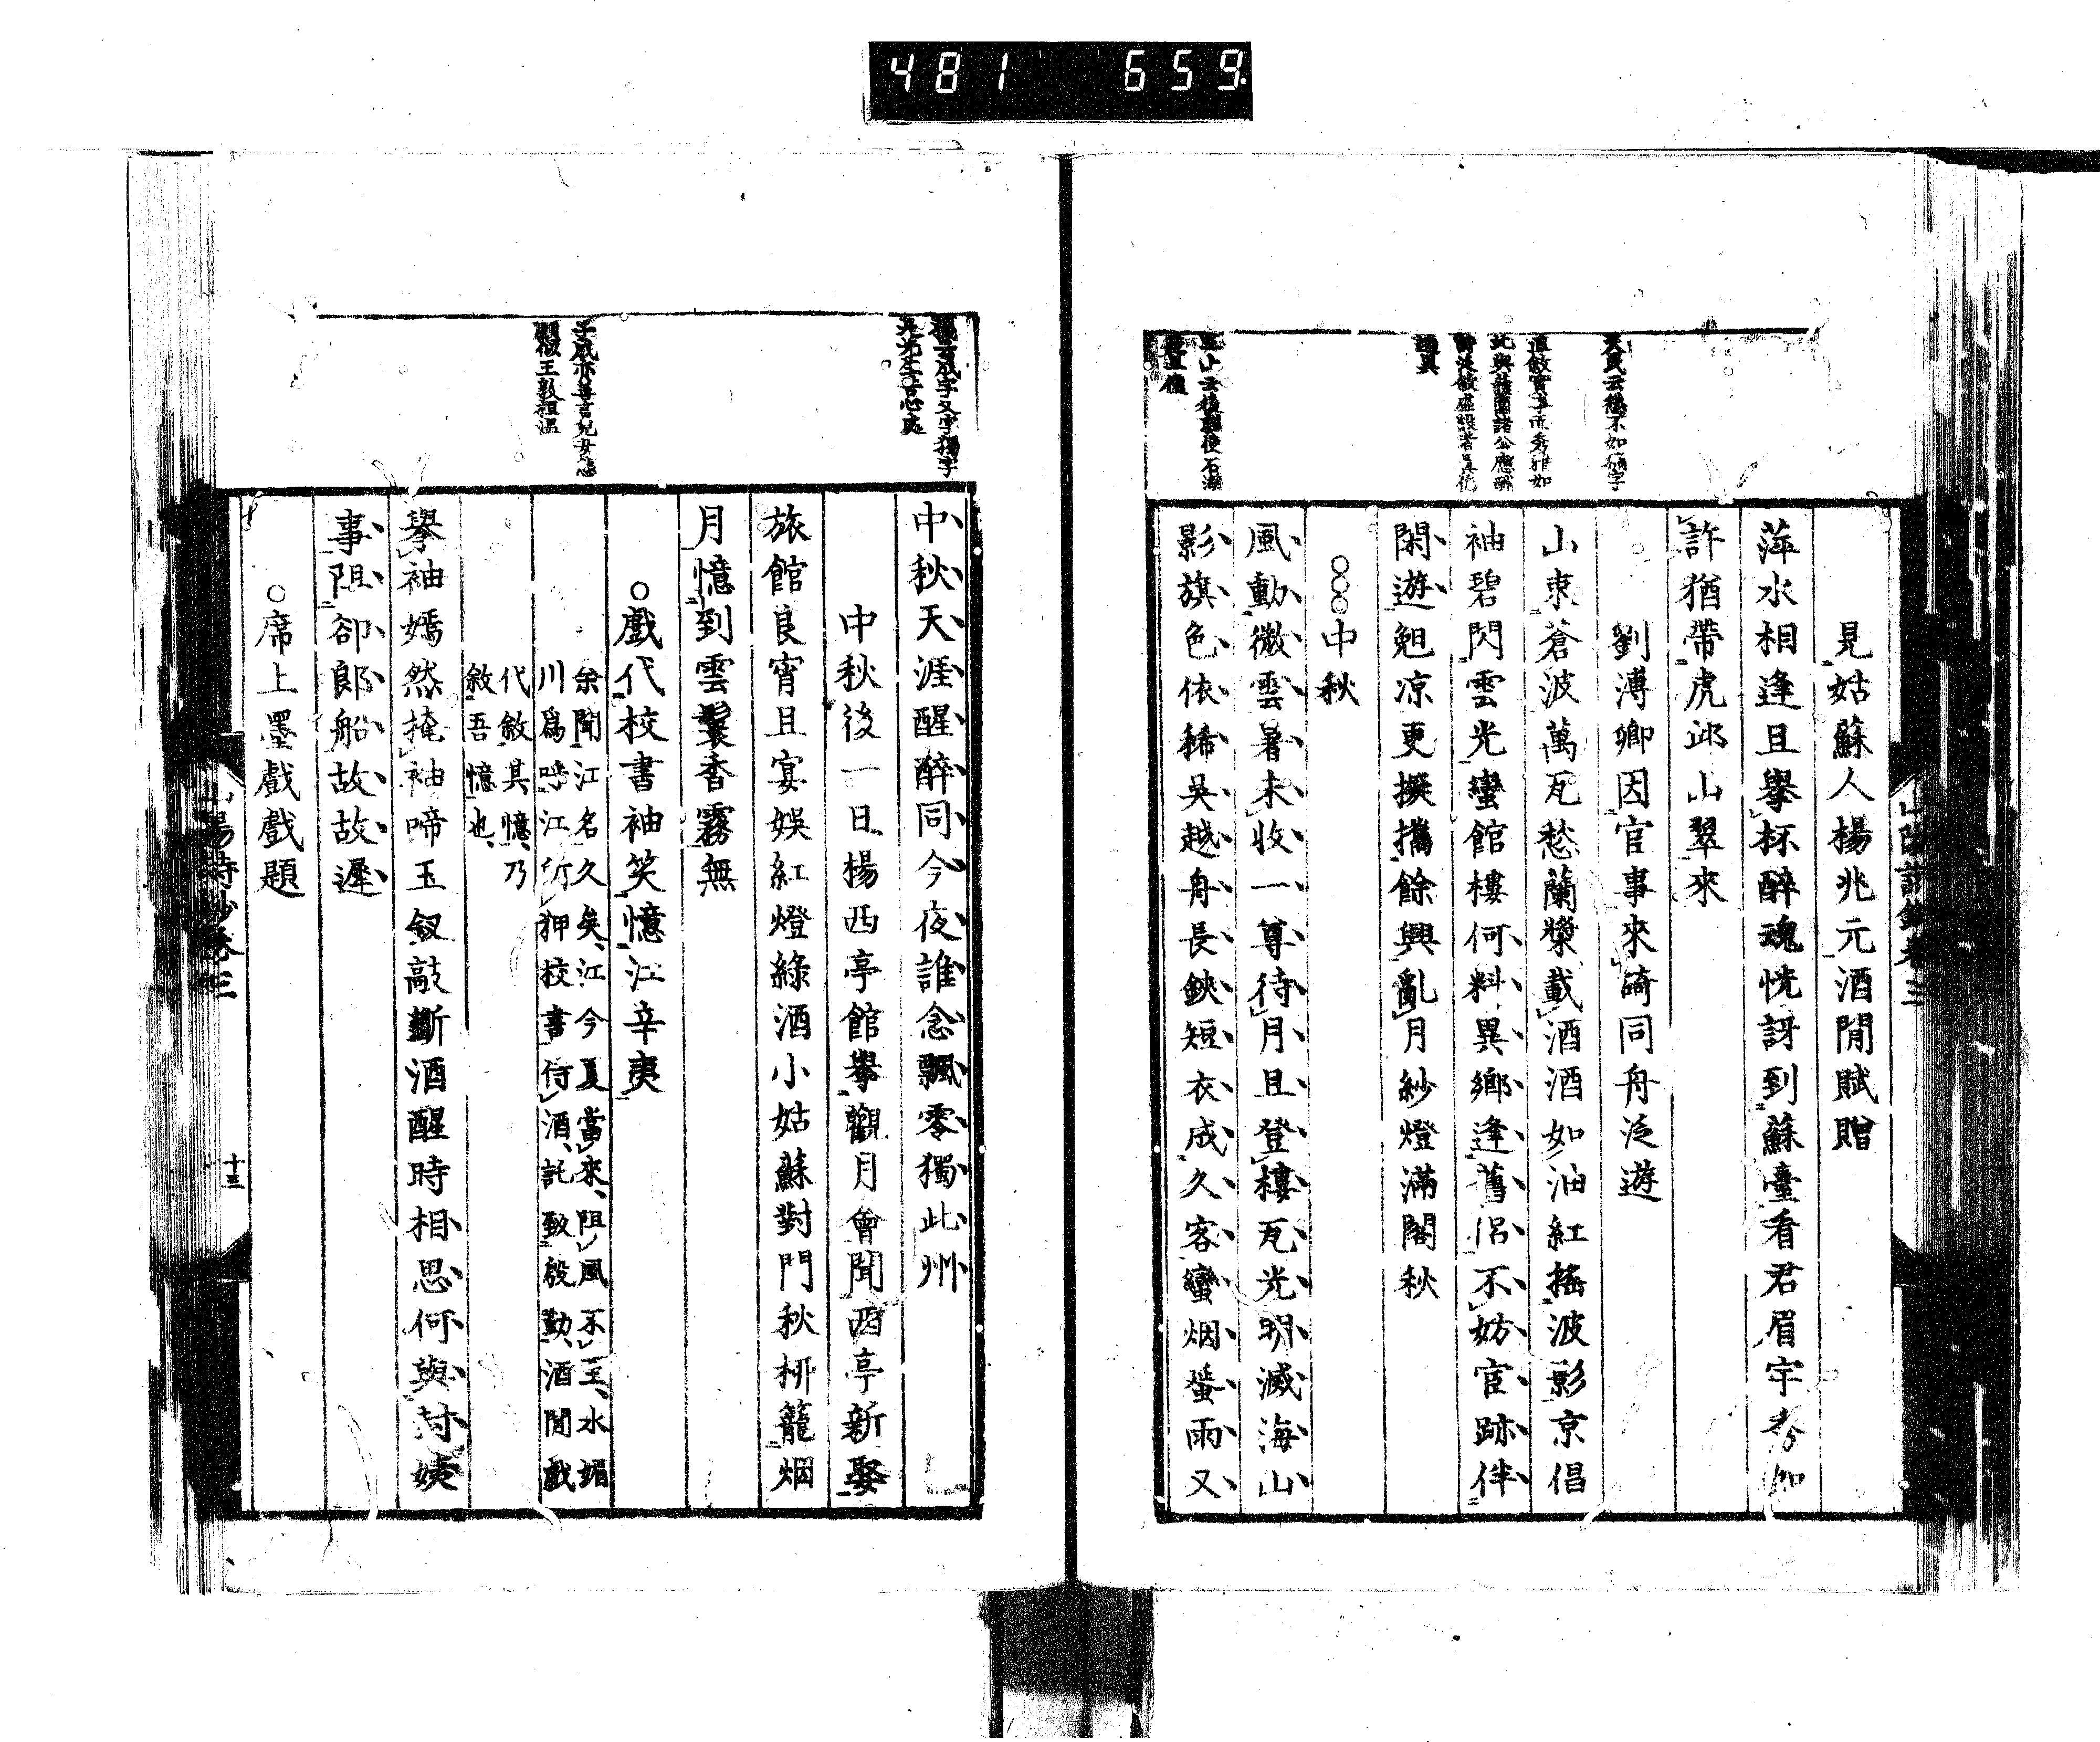 481 659
天民云總不如
直敘實事而秀雅如
此與諸蘭諸公應酬
見姑蘇人楊兆元酒間賦贈
萍水相逢且擧杯醉魂恍訝到蘇臺看君眉宇秀如
許猶帶虎邱山翠來
劉溥卿因官事來崎同舟泛遊
山束蒼波萬瓦愁蘭槳載酒酒如油紅搖波影京倡
袖碧閃雲光蠻館樓何料異鄉逢舊侶不妨官跡伴
閑遊𩵋凉更擬攜餘興亂月紗燈滿閣秋
○○○中秋
風動微雲暑未收一尊待月且登樓瓦光明滅海山
影旗色依稀吳越舟長鋏短衣成久客蠻烟蜑雨又
山陽詩鈔卷三
獨字
先生苦心處
子成亦善言兒女態
頗似王敦桓温
中秋天涯醒醉同今夜誰念飄零獨此州
中秋後一日楊西亭館擧觀月會聞西亭新娶
旅館良宵且宴娛紅燈綠酒小姑蘇對門秋柳籠烟
月憶到雲鬟香霧無
○戲代校書袖笑憶江辛夷
余聞江名久矣江今夏當來阻風不至水媚
川爲呼江所狎校書侍酒託致殷勤酒間戲
代敘其憶乃
敘吾憶也
擧袖嫣然掩袖啼玉釵敲斷酒醒時相思何與封姨
事阻郤郎船故故遲
○席上墨戲戲題
山陽詩鈔卷三
十三